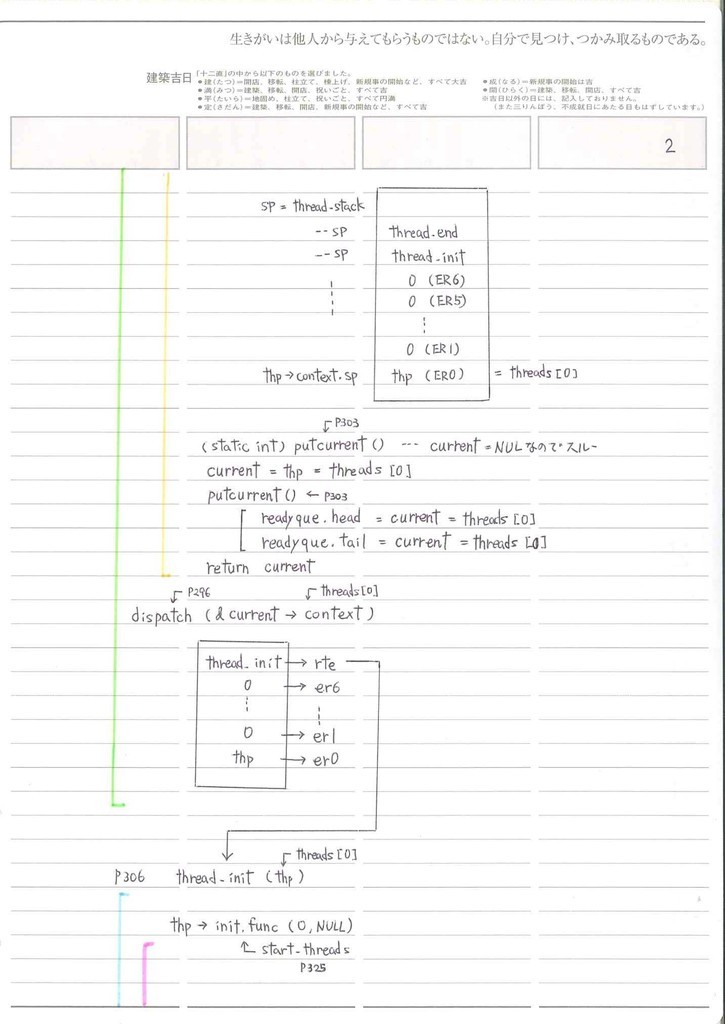 生きがいは他人から与えてもらうものではない。自分で見つけ、つかみ取るものである。
建築吉日
「十二直」の中から以下のものを選びました。
●建(たつ)=開店、移転、柱立て、棟上げ、新規事の開始など、すべて大吉
●満(みつ)=建築、移転、開店、祝いごと、すべて吉
●平(たいら)=地固め、柱立て、祝いごと、すべて円満
●定(さだん)=建築、移転、開店、新規事の開始など、すべて吉
●成(なる)=新規事の開始は吉
●開(ひらく)=建築、移転、開店、すべて吉
※吉日以外の日には、記入しておりません。
(また三りんぼう、不成就日にあたる日もはずしています。)
2
SP = thread_stack
--SP thread_end
--SP thread_init
0 (ER6)
0 (ER5)
0 (ER1)
thp→context.sp thp (ER0) = threads[0]
P303
(static int) putcurrent() --- current=NULなのでスルー
current = thp = threads[0]
putcurrent() ← P303
readyque.head = current = threads[0]
readyque.tail = current = threads[0]
return current
P296 threads[0]
dispatch (&current → context)
thread_init → rte
0 → er6
0 → er1
thp → er0
threads[0]
P306 thread_init (thp)
thp → init.func (0, NULL)
start_threads
P325